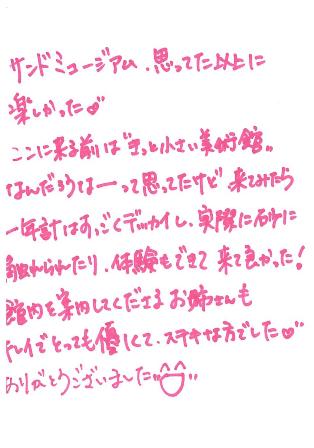 サンドミュージアム、思ってた以上に
楽しかった♡
ここに来る前は"きっと小さい美術館"
なんだろうなーって思ってたけど 来てみたら
一年計はあっごくデッカイし、実際に砂に
触れられたり、体験もできて 来て良かった!
館内を案内してくださる お姉さんも
キレイでとっても優しくて、ステキな方でした♡
ありがとうございました